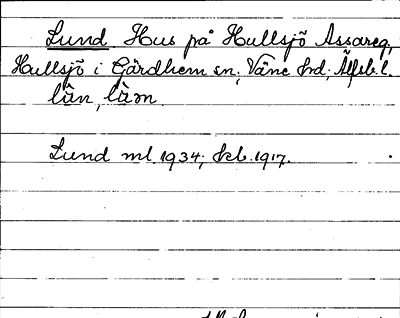 Lund Hus på Hullsjö Assareg,
Hullsjö i Gärdhem sn, Väne hd, Älfsb. l.
lùn, lùm.
Lund ml. 1934; kb. 1917.